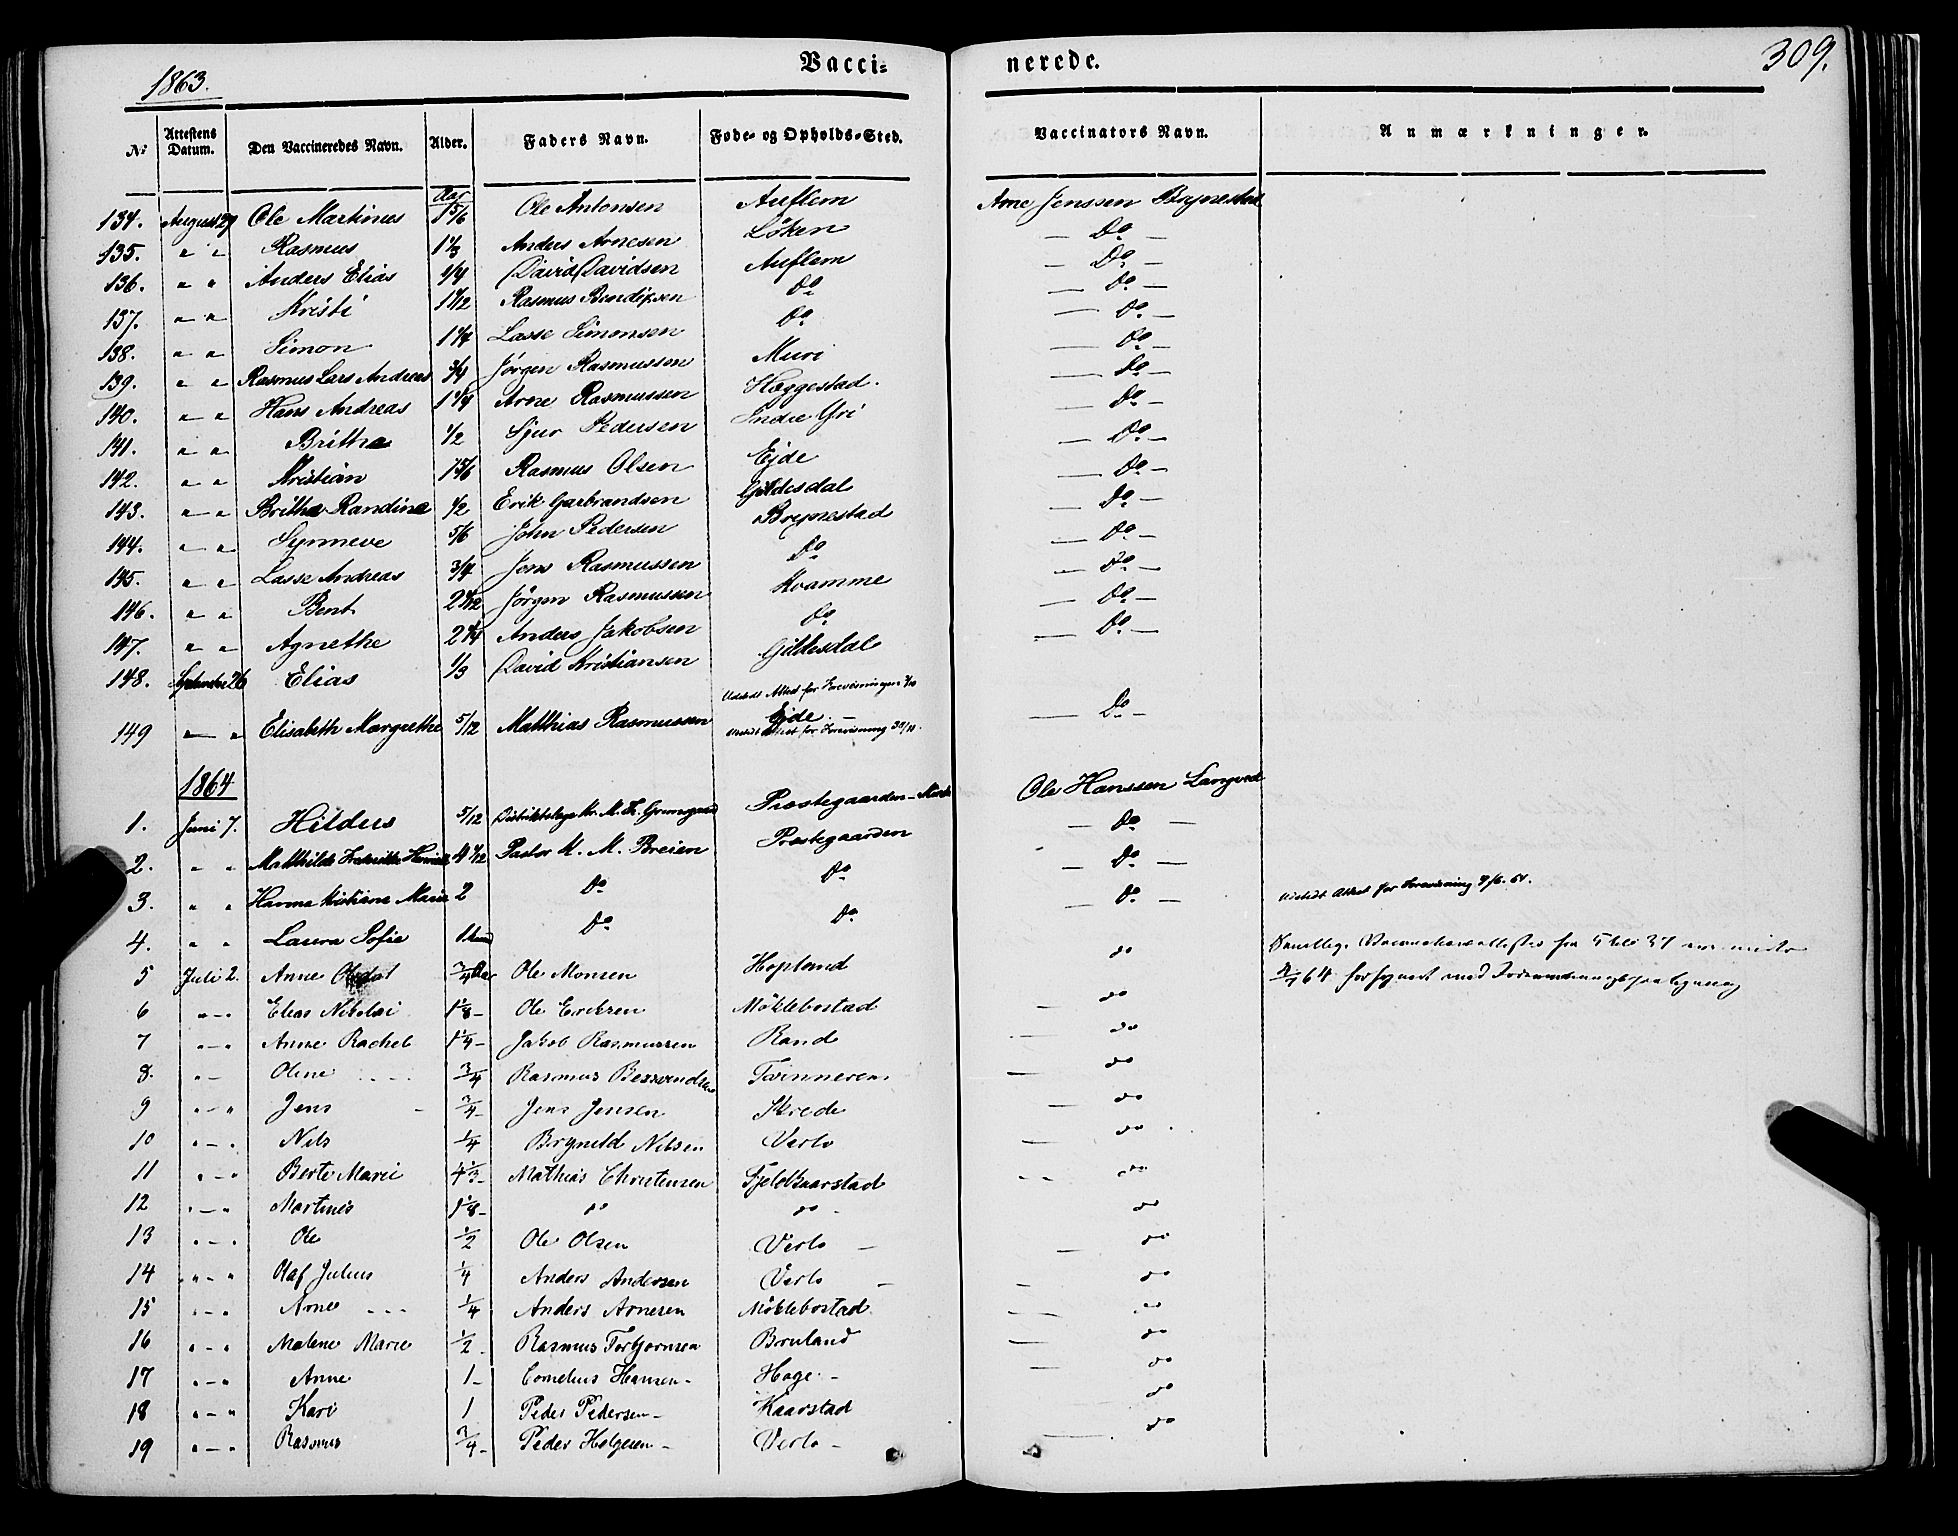 Vaccinerede.
309.
1863.
No Attestens Datum. Den Vaccineredes Navn. Alder. Faders Navn. Føde- og Opholds-Sted. Vaccinators Navn. Anmærkninger.
Aar
134. August 29 Ole Martinus 1 5/6 Ole Antonsen Auflem Arne Jenssen Brynestad
135. " " Rasmus 1 1/3 Anders Arnesen Löken — Do —
136. " " Anders Elias 1/4 David Davidsen Auflem — Do —
137. " " Kristi Rasmus Bendixsen Do — Do —
138. " " Simon 1 1/4 Lasse Simonsen Do — Do —
139. " " Rasmus Lars Andreas 3/4 Jörgen Rasmussen Muri — Do —
140. " " Hans Andreas 1 1/4 Arne Rasmussen Hæggestad. — Do —
141. " " Britha 1/2 Sjur Pedersen Indre Yri — Do —
142. " " Kristian 1 5/6 Rasmus Olsen Eide — Do —
143. " " Britha Randina 1/2 Erik Garbrandsen Gildesdal — Do —
144. " " Synneve 5/6 John Pedersen Brynestad — Do —
145. " " Lasse Andreas 3/4 Jens Rasmussen Do — Do —
146. " " Bent Jörgen Rasmussen Kvamme — Do —
147. " " Agnethe 2 1/4 Anders Jakobsen Do — Do —
148. September 26 Elias 1/3 David Kristiansen Gildesdal — Do —
Udstedt Attest for Forevisningen
149 " " Elisabeth Margrethe 5/12 Matthias Rasmussen Eide — — Do —
Udstedt Attest for Forevisning
1864
1. Juni 7. Hildus 5/12 Præstegaarden Ole Hanssen Langved
2. " " Mathilde 4 Pastor K. M. Breien Præstegaarden — Do —
3. " " Hanna Kristiane Marie 2 Do Do — Do —
4. " " Laura Sofie 1 Do Do — Do — Udstedt Attest for Forevisning
5 Juli 2. Anne 3/4 Aar Ole Monsen Hopland do
6 " " Elias Nikolai 1 1/8 Ole Ericksen Möklebostad do
7 " " Anne Rachel 1 1/4 Jakob Rasmussen Rand do
8. " Oline 3/4 Rasmus Tvinneren do
9 " " Jens 3/4 Jens Jensen Skrede do
10 " Nils 1/4 Brynild Nilsen Verlo do
11 " " Berte Marie 4 1/3 Mathias Christensen Fjeldkaarstad do
12 " " Martines 1 1/8 do do do
13 " " Ole 1/2 Ole Olsen Verlo — do
14 " " " Olaf Julius 1/4 Anders Andersen Verlo — do
15 " " Arne 1/4 Anders Arnesen Möklebostad do
16 " " Malene Marie 1/2 Rasmus Torbjornsen Bruland do
17 " " Anne 1 Cornelius Hansen Hage — do
18 " " Kari 1 Peder Pedersen Kaarstad do
19 " " Rasmus 3/4 Peder Helgesen Verlo — do